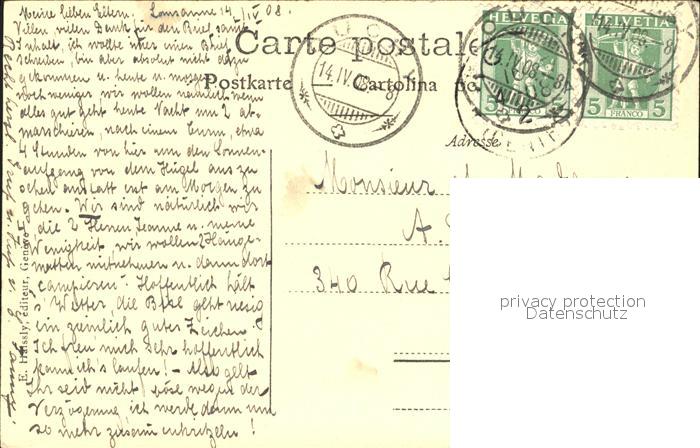 Meine lieben Eltern, Lausanne 14./IV 08.
Vielen vielen Dank für den Brief samt
Inhalt, ich wollte schreiben, bin aber absolut nicht dazu
gekommen u. heute u. morgen
noch weniger wir wollen nämlich wenn
alles gut geht heute Nacht um 2 ab-
marschieren, nach einem Turm, etwa
4 Stunden von hier um den Sonnen-
aufgang von dem Hügel aus zu
sehen anstatt erst am Morgen zu
gehen. Wir sind natürlich wir
die 2 Herren Jeanne u. meine
Wenigkeit, wir wollen 2 Hänge-
matten mitnehmen u. dann dort
campieren. Hoffentlich hält
s' Wetter, die Bise geht riesig
ein ziemlich gutes Zeichen.
Ich freu' mich sehr hoffentlich
kann ich's laufen! - Also gelt
Ihr seid nicht böse wegen der
Verzögerung ich werde dann um
so mehr zusammenkritzeln!
Carte postale
Postkarte — Cartolina po
Adresse
HELVETIA
5 5
FRANCO
HELVETIA
5 5
FRANCO
14.IV.08.-8
14.IV.08.-8
IV.08.-8
Monsieur
A.
340 Rue
E. Haissly, éditeur, Genève
privacy protection
Datenschutz